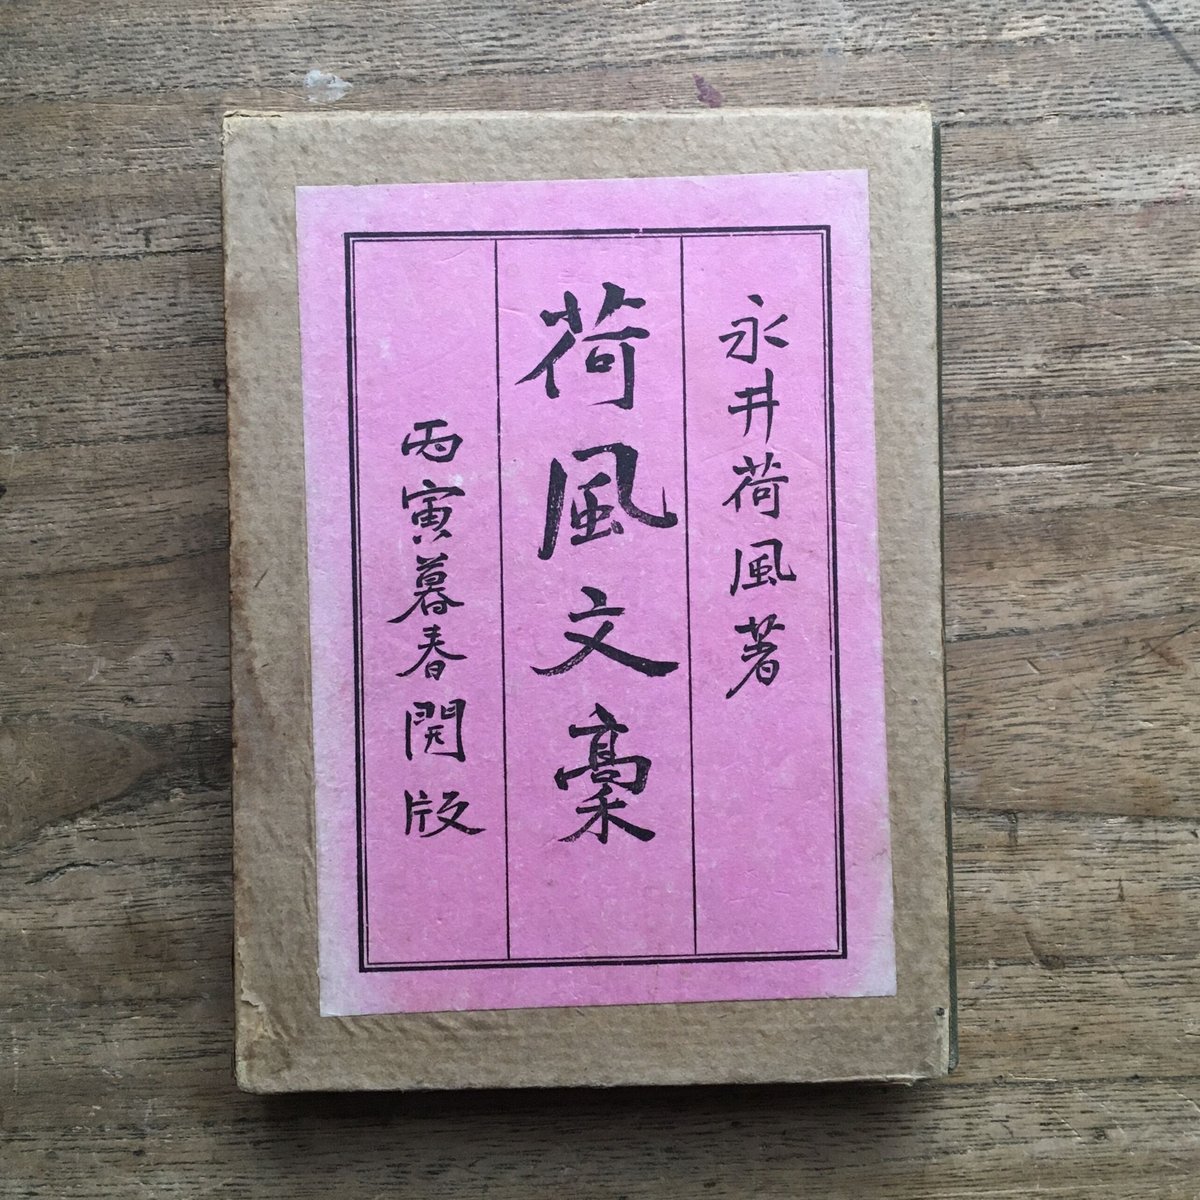 永井荷風著
荷風文稾
丙寅暮春開版